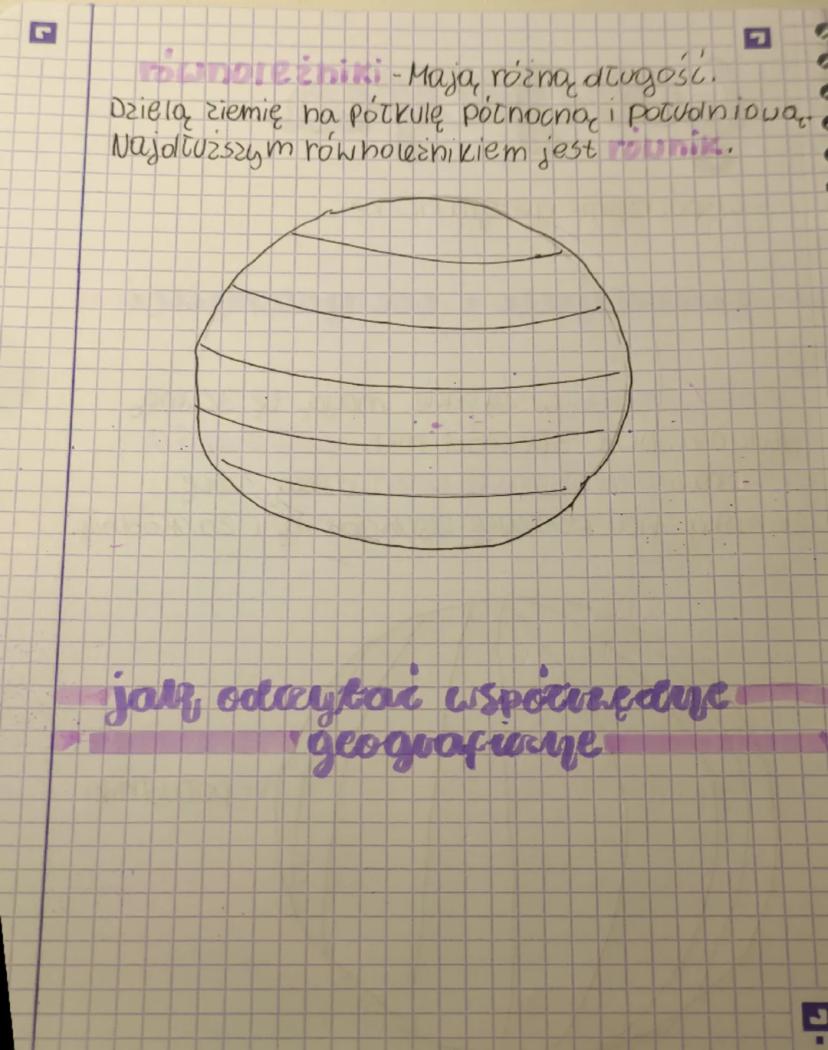 równoleżniki - Mają różną długość.
Dzielą ziemię na półkulę północną i południową.
Najdłuższym równoleżnikiem jest równik.
jak odczytać współrzędne
geograficzne